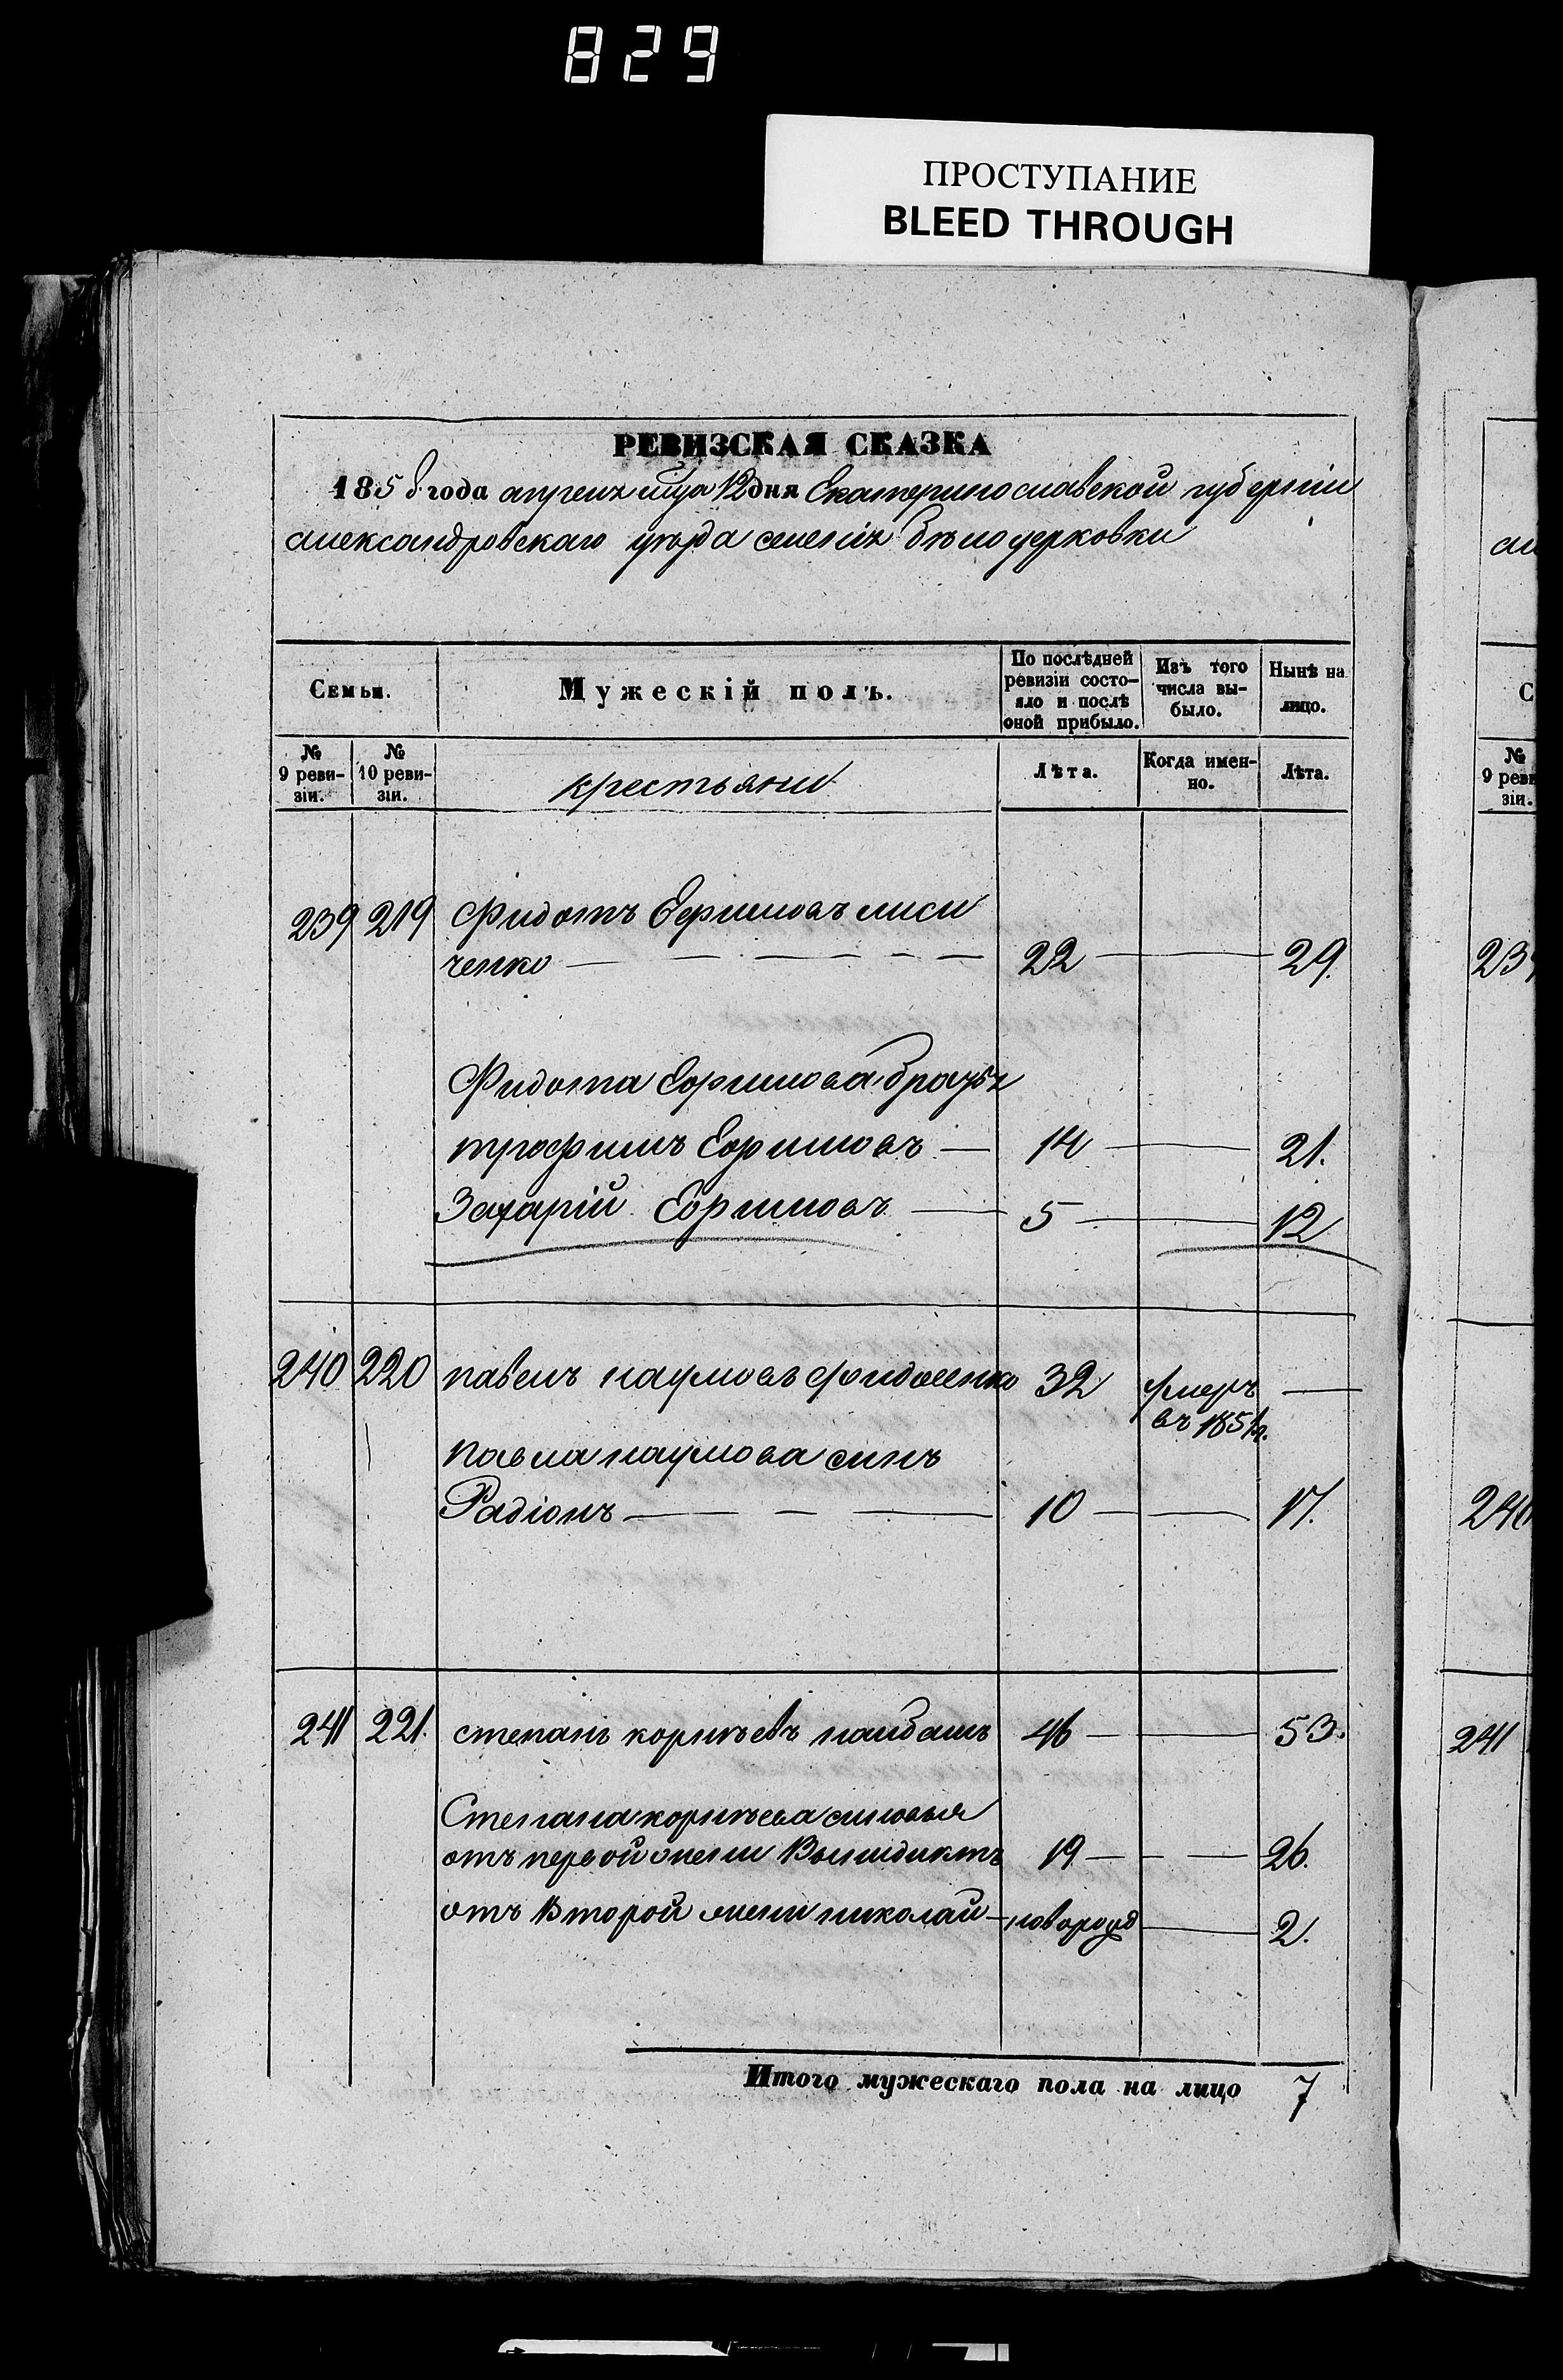 829
ПРОСТУПАНИЕ
BLEED THROUGH
РЕВИЗСКАЯ СКАЗКА
1858 года апреля мца 12 дня Екатеринославской губерніи
александровскаго уезда селенія бѣлоцерковки
ал
Семьи.
Мужескій полъ.
По послѣдней ревизіи состо-яло и послѣ оной прибыло.
Изъ того числа вы-было.
Нынѣ на лицо.
С
№ 9 реви-зіи.
№ 10 реви-зіи.
крестьяни
Лѣта.
Когда имен-но.
Лѣта.
№ 9 реви зіи.
239 219 Фидотъ Ефимовъ лиси
ченко 22 29.
23
Фидота Ефимова братья
трофимъ Ефимовъ 14 21.
Захарій Ефимовъ 5 12
240 220 павелъ наумовъ фидосенко 32 умеръ
въ 1851 г.
павла наумова синъ
Радіонъ 10 17.
240
241 221. степанъ корнѣевъ найдашъ 46 53.
241
Степана корнѣева синовья
отъ первой жени Венидиктъ 19 26.
отъ Второй жени николай новорожд 2.
Итого мужескаго пола на лицо 7